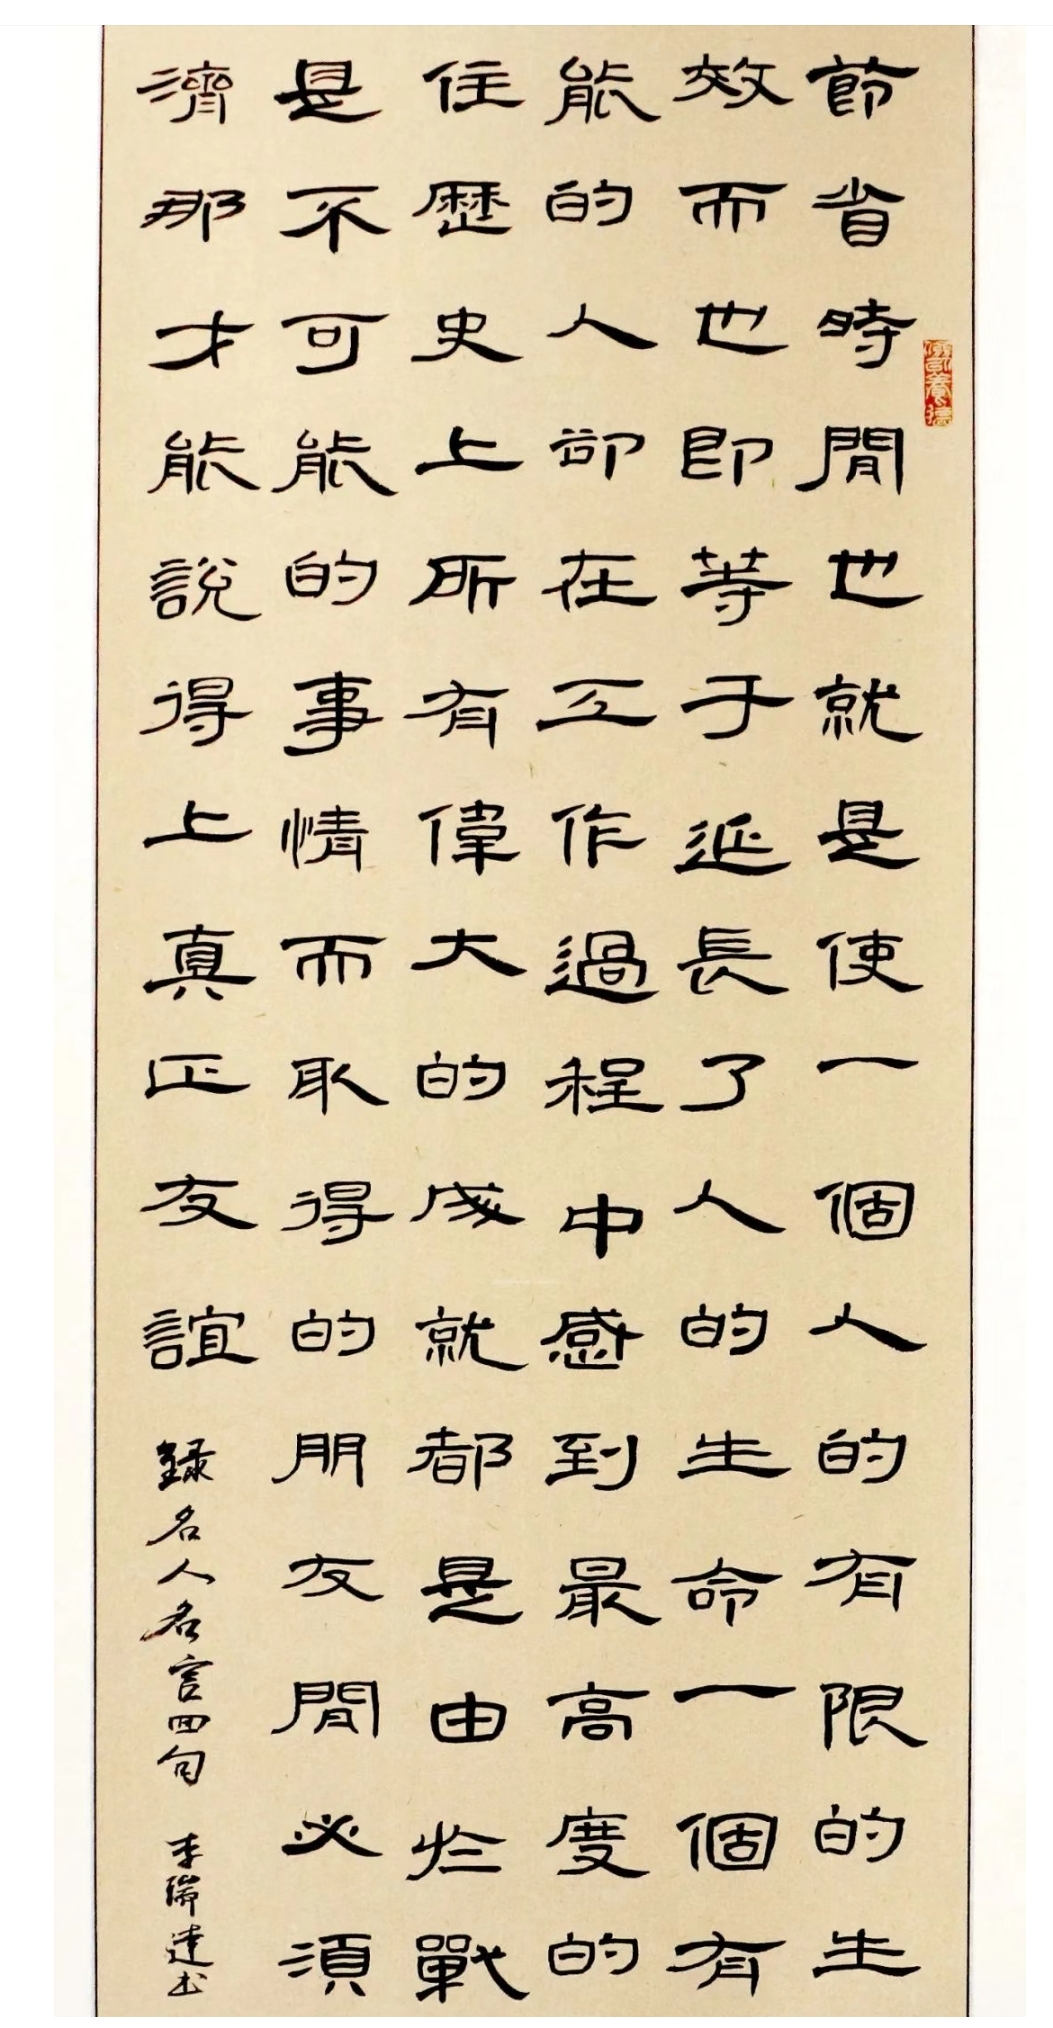 儉以養德
節省時閒也就是使一個人的有限的生
效而也即等于延長了人的生命一個有
能的人卻在工作過程中感到最高度的
住歷史上所有偉大的成就都是由於戰
是不可能的事情而取得的朋友閒必須
濟那才能說得上真正友誼 錄名人名言四句 李瑞達书